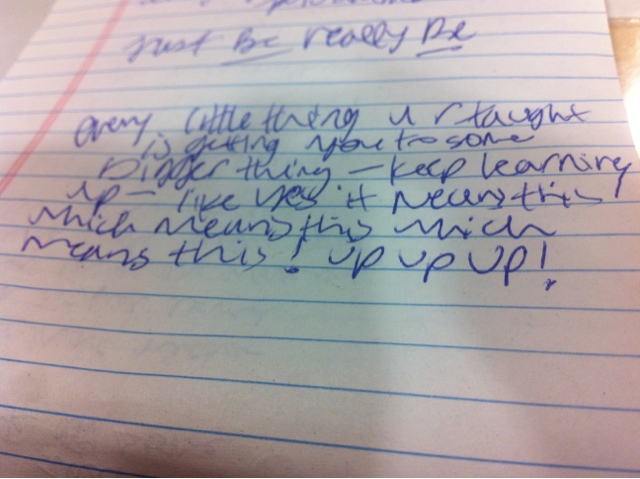 Just Be really Be
every little thing u r taught
is getting you to some
Bigger thing – keep learning
up – like yes it means this
which means this which
means this! up up up!